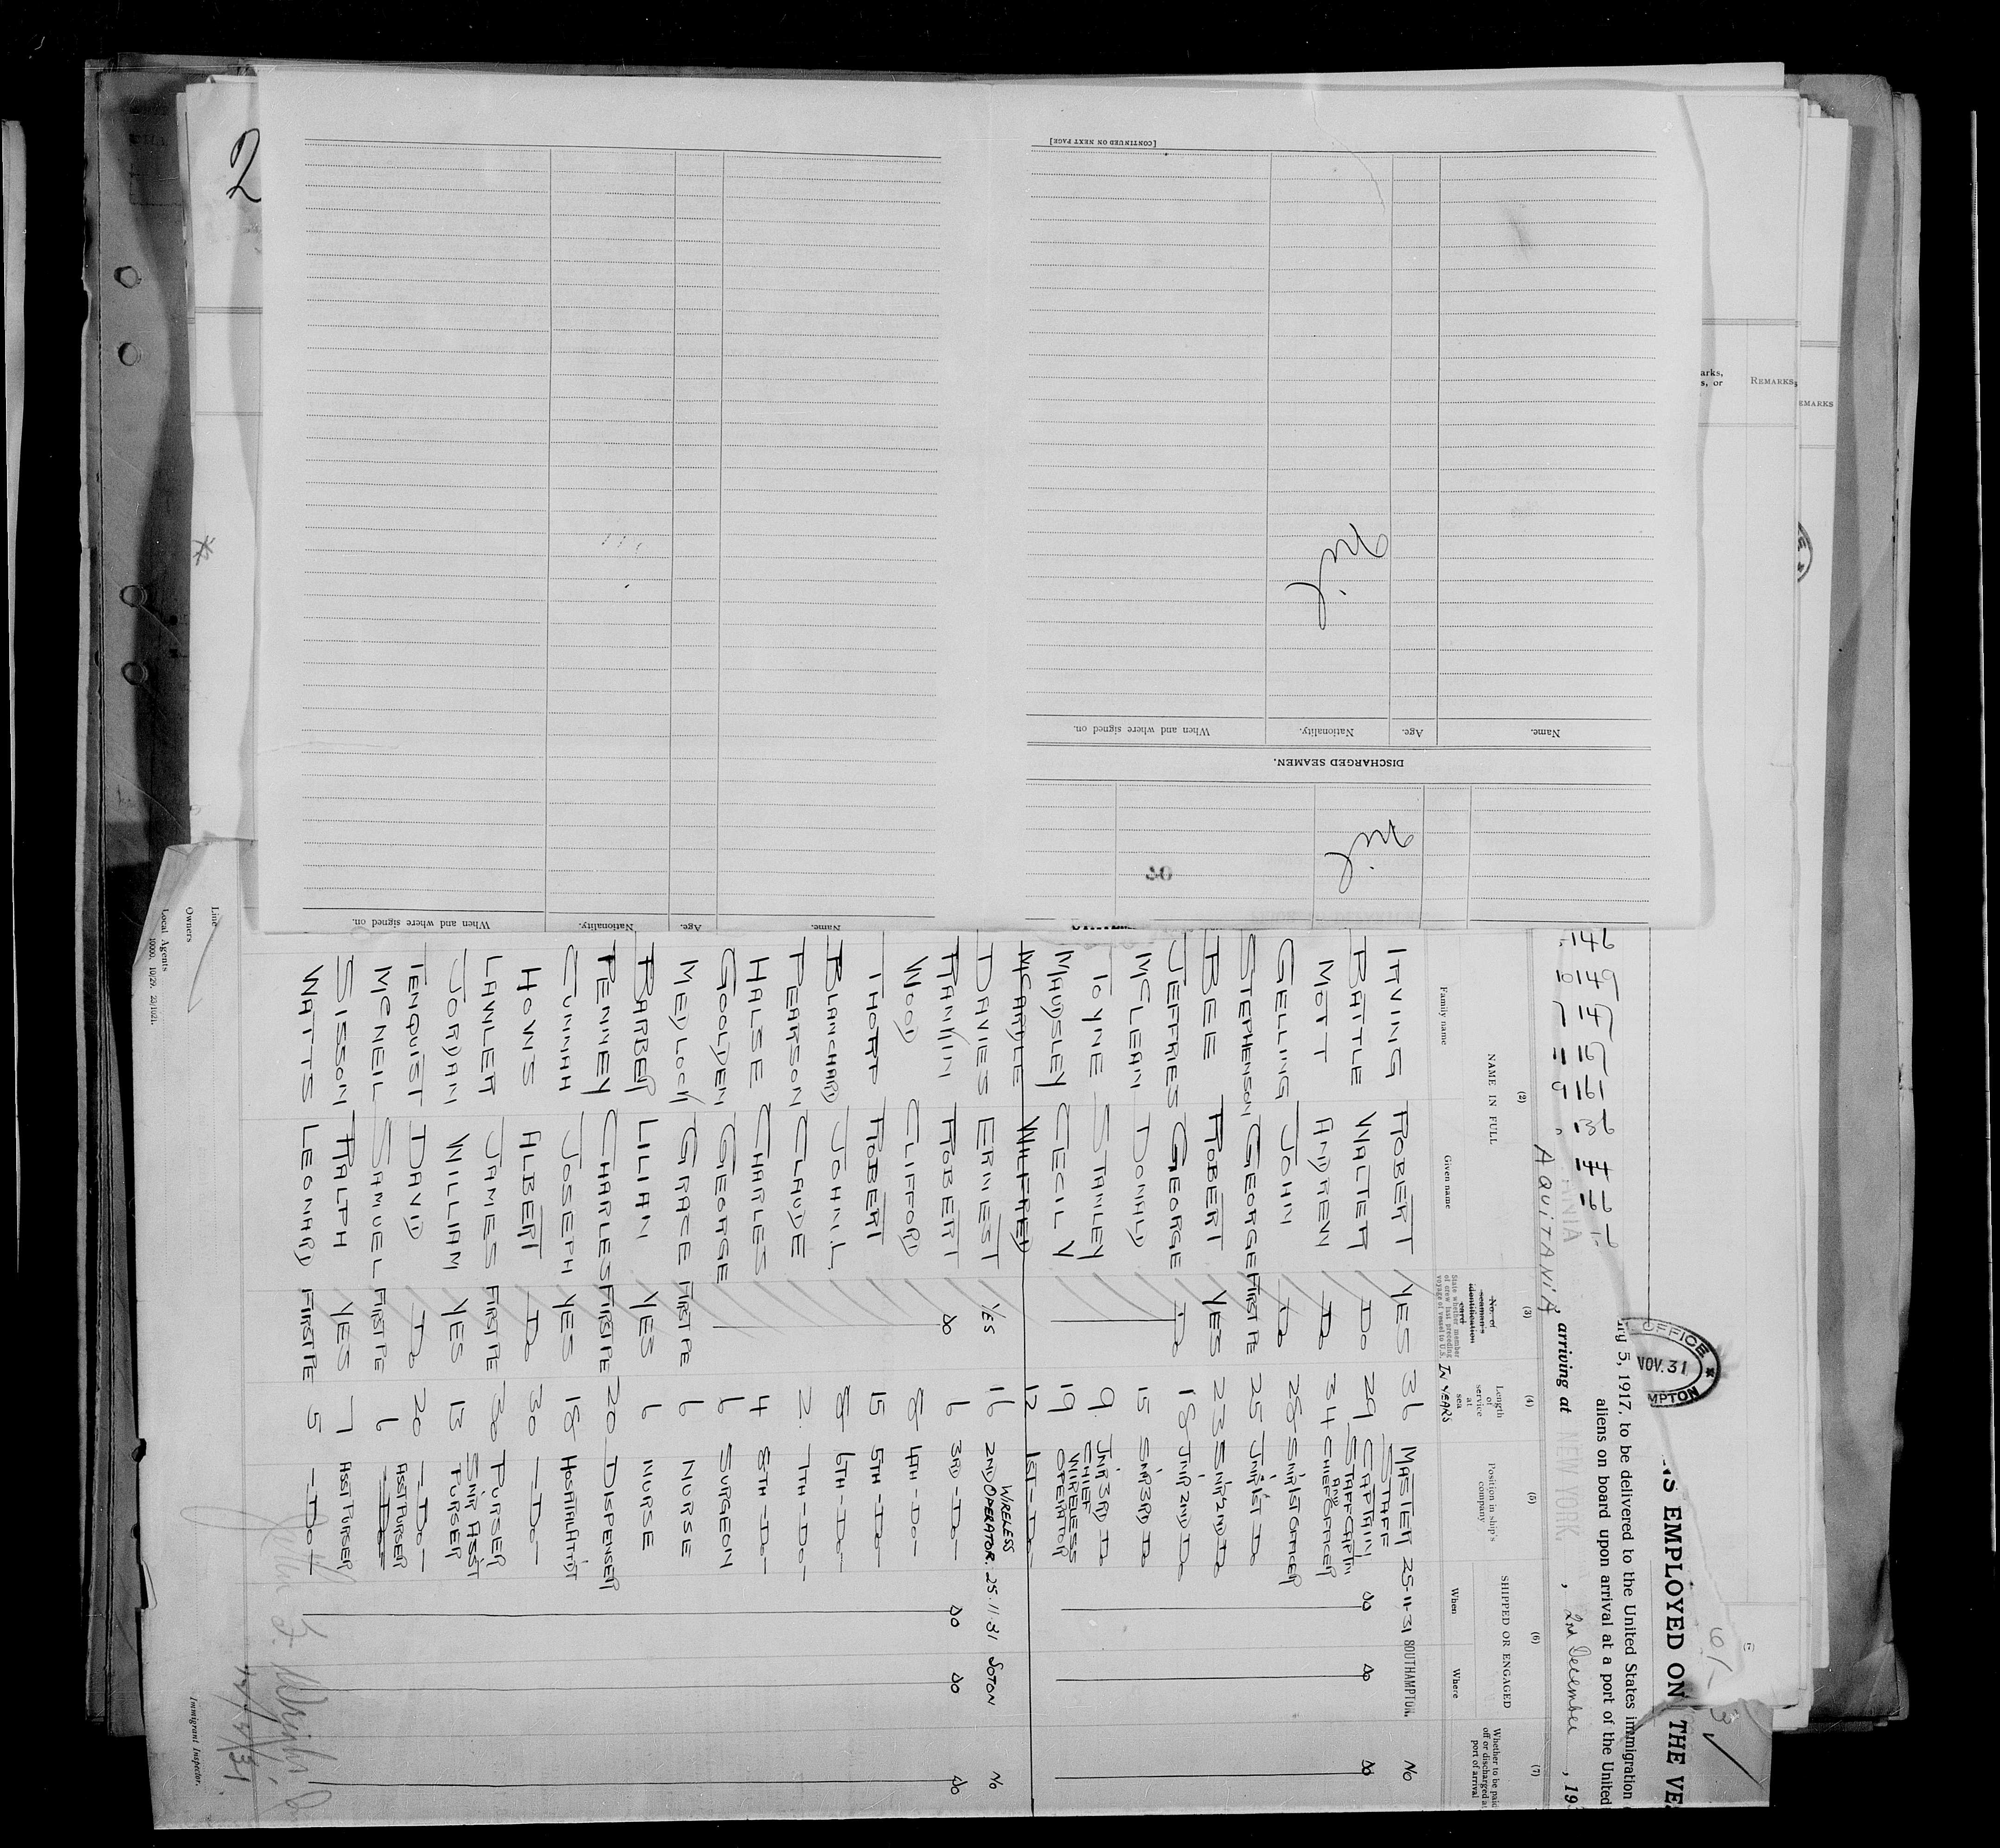 2
[CONTINUED ON NEXT PAGE]
Nil
Name. Age. Nationality. When and where signed on.
DISCHARGED SEAMEN.
Nil
30
Name. Age. Nationality. When and where signed on.
arks,
s, or
REMARKS,
EMARKS
(7)
NS EMPLOYED ON THE VE
ry 5, 1917, to be delivered to the United States immigration
aliens on board upon arrival at a port of the United
OFFICE
NOV.31
MPTON
AQUITANIA, arriving at NEW YORK, , 2nd December , 193
(2) (3) (4) (5) (6) (7)
NAME IN FULL
Family name Given name
No. of seaman's identification card
State whether member of crew last preceding voyage of vessel to U.S.
Length of service at sea
IN YEARS
Position in ship's company
SHIPPED OR ENGAGED
When Where
Whether to be paid off or discharged at port of arrival
IRVING ROBERT YES 36 MASTER 25-11-31 SOUTHAMPTON. NO
BATTLE WALTER DO 29 STAFF CAPTAIN DO DO DO
MOTT ANDREW DO 34 STAFF CAPTN AND CHIEF OFFICER
GELLING JOHN DO 28 SNR 1ST OFFICER
STEPHENSON GEORGE FIRST TE 25 JNR 1ST DO
BEE ROBERT YES 23 SNR 2ND DO
JEFFRIES GEORGE DO 18 JNR 2ND DO
MCLEAN DONALD 15 SNR 3RD DO
TOYNE STANLEY 9 JNR 3RD DO
MAUDSLEY CECIL V 19 CHIEF WIRELESS OPERATOR
MCARDLE WILFRED 12 1ST-DO
DAVIES ERNEST YES 16 2ND WIRELESS OPERATOR. 25.11.31 SOTON NO
RANKIN ROBERT DO 6 3RD-DO- DO DO DO
WOOD CLIFFORD 8 4TH-DO-
THORP ROBERT 15 5TH-DO-
BLANCHARD JOHN.L 8 6TH-DO-
PEARSON CLAUDE 2. 7TH-DO-
HALSE CHARLES 4 8TH-DO-
GOOLDEN GEORGE 6 SURGEON
MEDLOCK GRACE FIRST PE 6 NURSE
BARBER LILIAN YES 6 NURSE
PENNEY CHARLES FIRST PE 20 DISPENSER
CUNNAH JOSEPH YES 18 HOSPITAL ATTDT
HOWS ALBERT DO 30 -DO-
LAWLER JAMES FIRST PE 30 PURSER
JORDAN WILLIAM YES 13 SNR ASST PURSER
TENQUIST DAVID DO 20 -DO-
MCNEIL SAMUEL FIRST PE 6 ASST PURSER
SISSON RALPH YES 7 ASST PURSER
WATTS LEONARD FIRST PE 5 -DO-
Line
Owners
Local Agents
Immigrant Inspector.